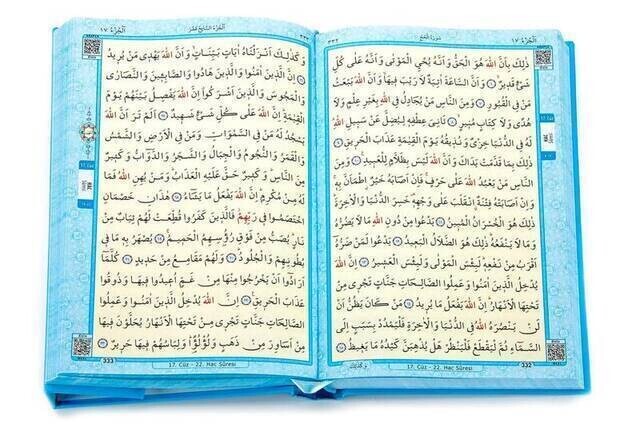 اَلْجُزْءُ ١٧
سُورَةُ الْحَجِّ
٣٣٢
ذٰلِكَ بِاَنَّ اللّٰهَ هُوَ الْحَقُّ وَاَنَّهُ يُحْيِ الْمَوْتٰى وَاَنَّهُ عَلٰى كُلِّ
شَيْءٍ قَدِيرٌ ﴿٦﴾ وَاَنَّ السَّاعَةَ اٰتِيَةٌ لَا رَيْبَ فِيهَا وَاَنَّ اللّٰهَ يَبْعَثُ
مَنْ فِي الْقُبُورِ ﴿٧﴾ وَمِنَ النَّاسِ مَنْ يُجَادِلُ فِي اللّٰهِ بِغَيْرِ عِلْمٍ وَلَا
هُدًى وَلَا كِتَابٍ مُنِيرٍ ﴿٨﴾ ثَانِيَ عِطْفِهِ لِيُضِلَّ عَنْ سَبِيلِ اللّٰهِ
لَهُ فِي الدُّنْيَا خِزْيٌ وَنُذِيقُهُ يَوْمَ الْقِيٰمَةِ عَذَابَ الْحَرِيقِ ﴿٩﴾
ذٰلِكَ بِمَا قَدَّمَتْ يَدَاكَ وَاَنَّ اللّٰهَ لَيْسَ بِظَلَّامٍ لِلْعَبِيدِ ﴿١٠﴾ وَمِنَ
النَّاسِ مَنْ يَعْبُدُ اللّٰهَ عَلٰى حَرْفٍ فَاِنْ اَصَابَهُ خَيْرٌ اطْمَاَنَّ بِهِ
وَاِنْ اَصَابَتْهُ فِتْنَةٌ انْقَلَبَ عَلٰى وَجْهِهِ خَسِرَ الدُّنْيَا وَالْاٰخِرَةَ
ذٰلِكَ هُوَ الْخُسْرَانُ الْمُبِينُ ﴿١١﴾ يَدْعُوا مِنْ دُونِ اللّٰهِ مَا لَا يَضُرُّهُ
وَمَا لَا يَنْفَعُهُ ذٰلِكَ هُوَ الضَّلَالُ الْبَعِيدُ ﴿١٢﴾ يَدْعُوا لَمَنْ ضَرُّهُ
اَقْرَبُ مِنْ نَفْعِهِ لَبِئْسَ الْمَوْلٰى وَلَبِئْسَ الْعَشِيرُ ﴿١٣﴾ اِنَّ اللّٰهَ
يُدْخِلُ الَّذِينَ اٰمَنُوا وَعَمِلُوا الصَّالِحَاتِ جَنَّاتٍ تَجْرِي مِنْ
تَحْتِهَا الْاَنْهَارُ اِنَّ اللّٰهَ يَفْعَلُ مَا يُرِيدُ ﴿١٤﴾ مَنْ كَانَ يَظُنُّ اَنْ
لَنْ يَنْصُرَهُ اللّٰهُ فِي الدُّنْيَا وَالْاٰخِرَةِ فَلْيَمْدُدْ بِسَبَبٍ اِلَى
السَّمَاءِ ثُمَّ لْيَقْطَعْ فَلْيَنْظُرْ هَلْ يُذْهِبَنَّ كَيْدُهُ مَا يَغِيظُ ﴿١٥﴾
وَكَذٰلِكَ
17. Cüz - 22. Hac Sûresi
332
٣٣٣
اَلْجُزْءُ السَّابِعَ عَشَرَ
اَلْجُزْءُ ١٧
وَكَذٰلِكَ اَنْزَلْنَاهُ اٰيَاتٍ بَيِّنَاتٍ وَاَنَّ اللّٰهَ يَهْدِي مَنْ يُرِيدُ
﴿١٦﴾ اِنَّ الَّذِينَ اٰمَنُوا وَالَّذِينَ هَادُوا وَالصَّابِـِٔينَ وَالنَّصَارٰى
وَالْمَجُوسَ وَالَّذِينَ اَشْرَكُوا اِنَّ اللّٰهَ يَفْصِلُ بَيْنَهُمْ يَوْمَ
الْقِيٰمَةِ اِنَّ اللّٰهَ عَلٰى كُلِّ شَيْءٍ شَهِيدٌ ﴿١٧﴾ اَلَمْ تَرَ اَنَّ اللّٰهَ
يَسْجُدُ لَهُ مَنْ فِي السَّمٰوَاتِ وَمَنْ فِي الْاَرْضِ وَالشَّمْسُ
وَالْقَمَرُ وَالنُّجُومُ وَالْجِبَالُ وَالشَّجَرُ وَالدَّوَابُّ وَكَثِيرٌ
مِنَ النَّاسِ وَكَثِيرٌ حَقَّ عَلَيْهِ الْعَذَابُ وَمَنْ يُهِنِ اللّٰهُ فَمَا
لَهُ مِنْ مُكْرِمٍ اِنَّ اللّٰهَ يَفْعَلُ مَا يَشَاءُ ﴿١٨﴾ هٰذَانِ خَصْمَانِ
اخْتَصَمُوا فِي رَبِّهِمْ فَالَّذِينَ كَفَرُوا قُطِّعَتْ لَهُمْ ثِيَابٌ مِنْ
نَارٍ يُصَبُّ مِنْ فَوْقِ رُؤُسِهِمُ الْحَمِيمُ ﴿١٩﴾ يُصْهَرُ بِهِ مَا فِي
بُطُونِهِمْ وَالْجُلُودُ ﴿٢٠﴾ وَلَهُمْ مَقَامِعُ مِنْ حَدِيدٍ ﴿٢١﴾ كُلَّمَا
اَرَادُوا اَنْ يَخْرُجُوا مِنْهَا مِنْ غَمٍّ اُعِيدُوا فِيهَا وَذُوقُوا
عَذَابَ الْحَرِيقِ ﴿٢٢﴾ اِنَّ اللّٰهَ يُدْخِلُ الَّذِينَ اٰمَنُوا وَعَمِلُوا
الصَّالِحَاتِ جَنَّاتٍ تَجْرِي مِنْ تَحْتِهَا الْاَنْهَارُ يُحَلَّوْنَ فِيهَا
مِنْ اَسَاوِرَ مِنْ ذَهَبٍ وَلُؤْلُؤًا وَلِبَاسُهُمْ فِيهَا حَرِيرٌ ﴿٢٣﴾
333
17. Cüz - 22. Hac Sûresi